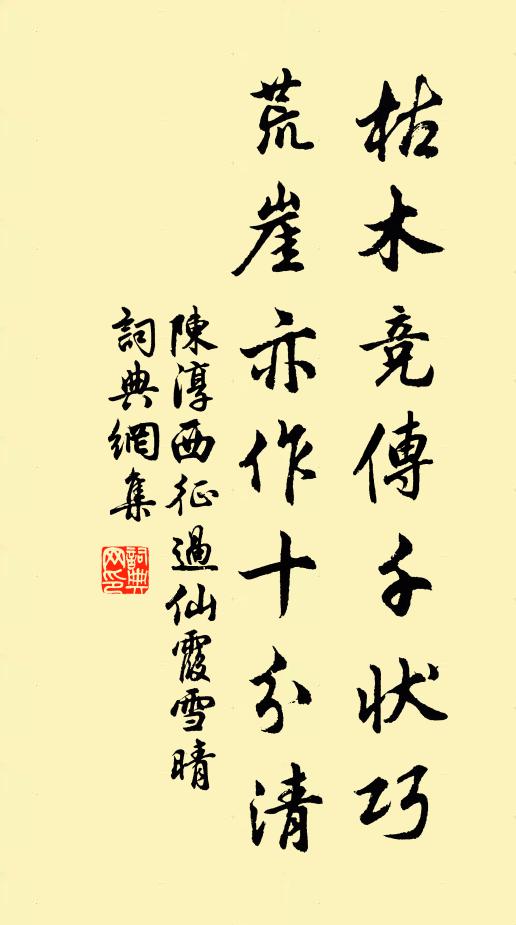 枯木竞傳千狀巧
荒崖亦作十分清
陳淳西征過仙霞雪晴
詞典網集
詞典网印